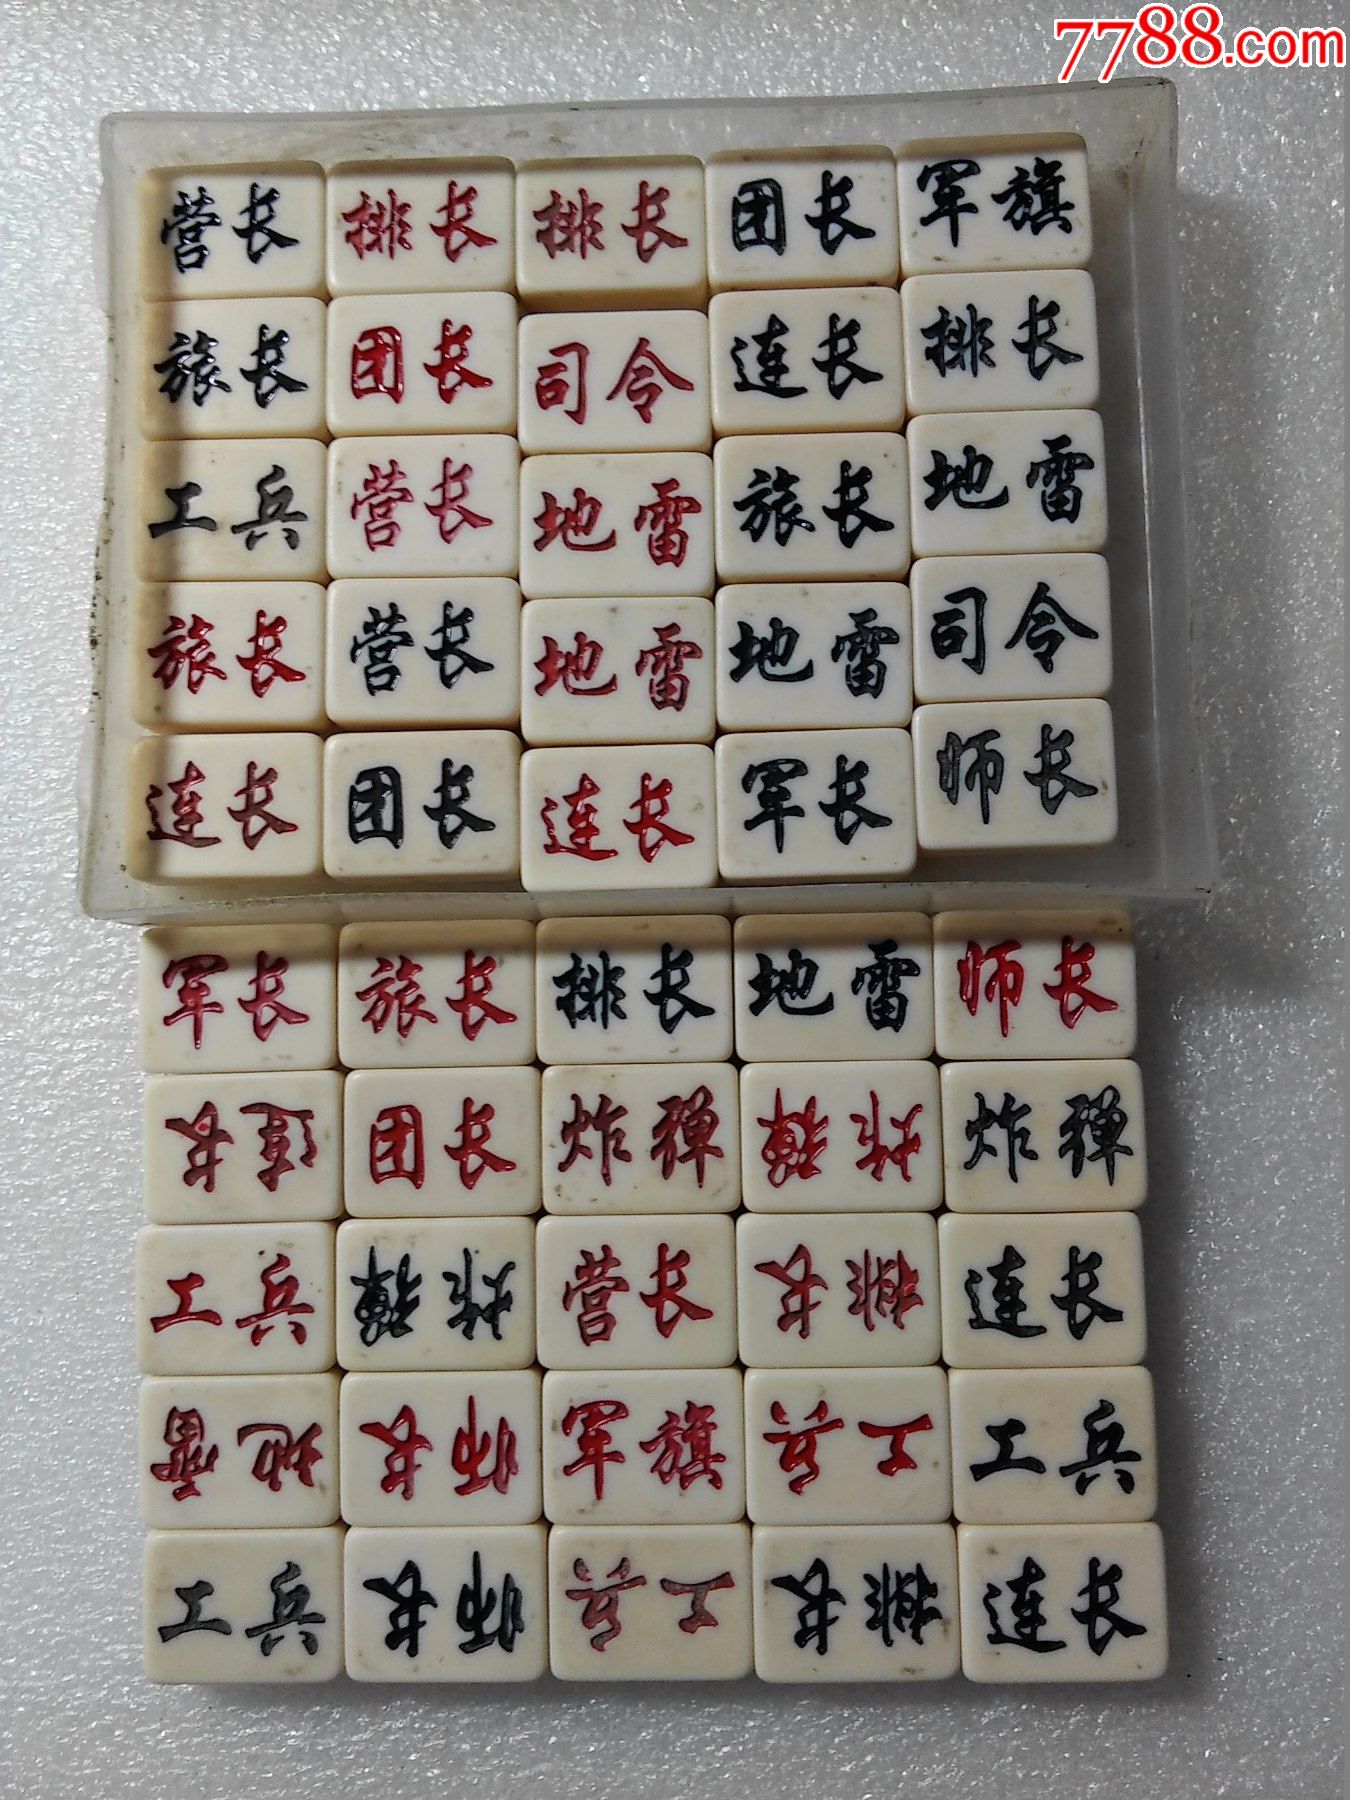 7788.com
营长 排长 排长 团长 军旗
旅长 团长 司令 连长 排长
工兵 营长 地雷 旅长 地雷
旅长 营长 地雷 地雷 司令
连长 团长 连长 军长 师长
军长 旅长 排长 地雷 师长
连长 团长 炸弹 炸弹 炸弹
工兵 炸弹 营长 排长 连长
地雷 师长 军旗 工兵 工兵
工兵 师长 工兵 排长 连长